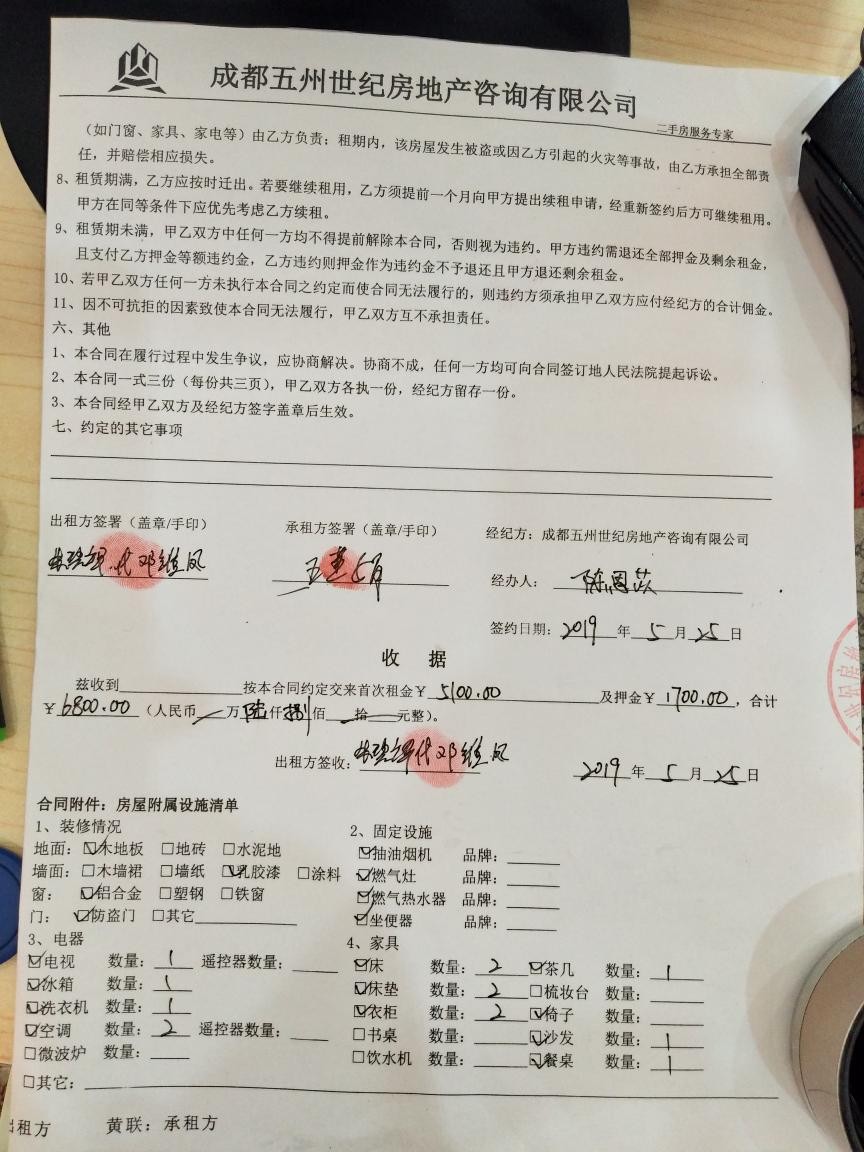 成都五州世纪房地产咨询有限公司
二手房服务专家
（如门窗、家具、家电等）由乙方负责；租期内，该房屋发生被盗或因乙方引起的火灾等事故，由乙方承担全部责
任，并赔偿相应损失。
8、租赁期满，乙方应按时迁出。若要继续租用，乙方须提前一个月向甲方提出续租申请，经重新签约后方可继续租用。
甲方在同等条件下应优先考虑乙方续租。
9、租赁期未满，甲乙双方中任何一方均不得提前解除本合同，否则视为违约。甲方违约需退还全部押金及剩余租金，
且支付乙方押金等额违约金，乙方违约则押金作为违约金不予退还且甲方退还剩余租金。
10、若甲乙双方任何一方未执行本合同之约定而使合同无法履行的，则违约方须承担甲乙双方应付经纪方的合计佣金。
11、因不可抗拒的因素致使本合同无法履行，甲乙双方互不承担责任。
六、其他
1、本合同在履行过程中发生争议，应协商解决。协商不成，任何一方均可向合同签订地人民法院提起诉讼。
2、本合同一式三份（每份共三页），甲乙双方各执一份，经纪方留存一份。
3、本合同经甲乙双方及经纪方签字盖章后生效。
七、约定的其它事项
出租方签署（盖章/手印） 承租方签署（盖章/手印） 经纪方：成都五州世纪房地产咨询有限公司
代邓维凤
经办人：陈恩苡
签约日期：2019 年 5 月 25 日
收 据
兹收到 按本合同约定交来首次租金￥ 5100.00 及押金￥ 1700.00，合计
￥ 6800.00 （人民币 万 陆 仟 捌 佰 拾 元整）。
出租方签收： 代邓维凤 2019 年 5 月 25 日
合同附件：房屋附属设施清单
1、装修情况 2、固定设施
地面：☑木地板 □地砖 □水泥地 ☑抽油烟机 品牌：
墙面：□木墙裙 □墙纸 ☑乳胶漆 □涂料 ☑燃气灶 品牌：
窗：☑铝合金 □塑钢 □铁窗 ☑燃气热水器 品牌：
门：☑防盗门 □其它 ☑坐便器 品牌：
3、电器 4、家具
☑电视 数量：1 遥控器数量： ☑床 数量：2 ☑茶几 数量：1
☑冰箱 数量：1 ☑床垫 数量：2 □梳妆台 数量：
☑洗衣机 数量：1 ☑衣柜 数量：2 ☑椅子 数量：
☑空调 数量：2 遥控器数量： □书桌 数量： ☑沙发 数量：1
□微波炉 数量： □饮水机 数量： ☑餐桌 数量：1
□其它：
出租方 黄联：承租方